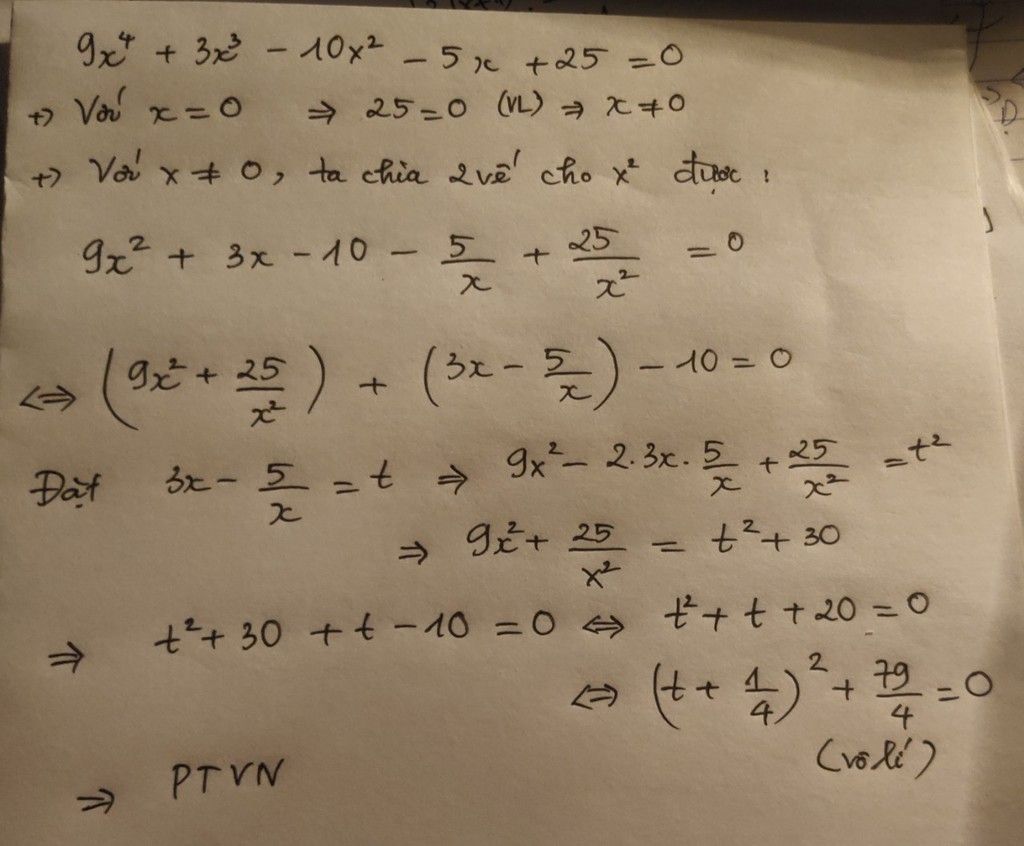 9x⁴ + 3x³ - 10x² - 5x + 25 = 0
+) Với x = 0 ⇒ 25 = 0 (VL) ⇒ x ≠ 0
+) Với x ≠ 0, ta chia 2 vế cho x² được:
9x² + 3x - 10 - 5/x + 25/x² = 0
⇔ (9x² + 25/x²) + (3x - 5/x) - 10 = 0
Đặt 3x - 5/x = t ⇒ 9x² - 2.3x.5/x + 25/x² = t²
⇒ 9x² + 25/x² = t² + 30
⇒ t² + 30 + t - 10 = 0 ⇔ t² + t + 20 = 0
⇔ (t + 1/4)² + 79/4 = 0
(vô lí)
⇒ PTVN